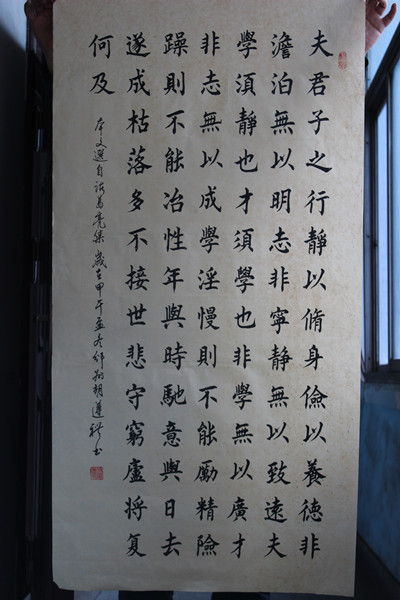 夫君子之行靜以脩身儉以養德非
澹泊無以明志非寧靜無以致遠夫
學須靜也才須學也非學無以廣才
非志無以成學淫慢則不能勵精險
躁則不能冶性年與時馳意與日去
遂成枯落多不接世悲守窮廬將复
何及
本文選自诸葛亮集 歲在甲午孟冬 胡 书